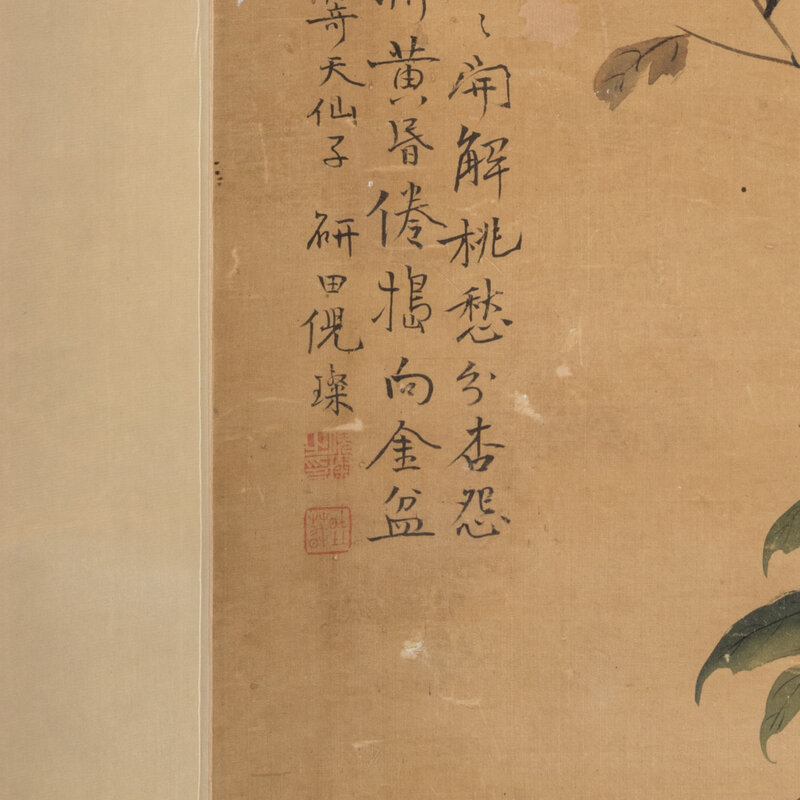 開解桃愁分杏怨
黄昏倦搗向金盆
寄天仙子 研田倪璨